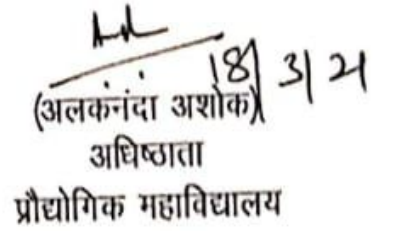 18/3/21
(अलकनंदा अशोक)
अधिष्ठाता
प्रौद्योगिक महाविद्यालय